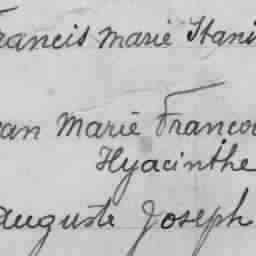 Francis Marie Stani
ean Marie Francoi
Hyacinthe
Auguste Joseph